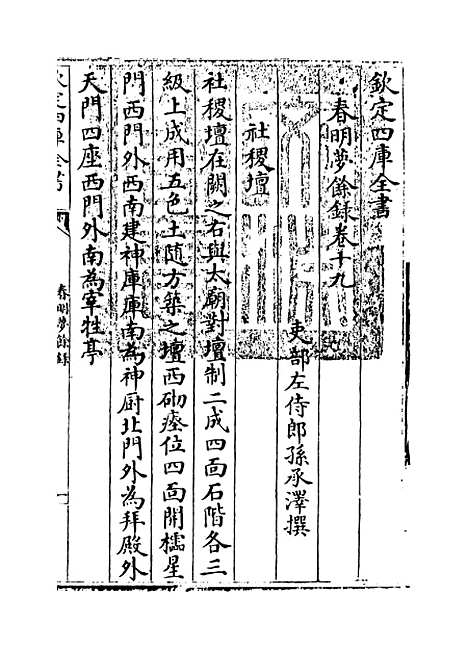 欽定四庫全書
春明夢餘錄卷十九
吏部左侍郎孫承澤撰
社稷壇
社稷壇在闕之右與太廟對壇制二成四面石階各三
級上成用五色土随方築之壇西砌瘞位四面開櫺星
門西門外西南建神庫庫南為神厨北門外為拜殿外
天門四座西門外南為宰牲亭
欽定四庫全書
春明夢餘錄
一